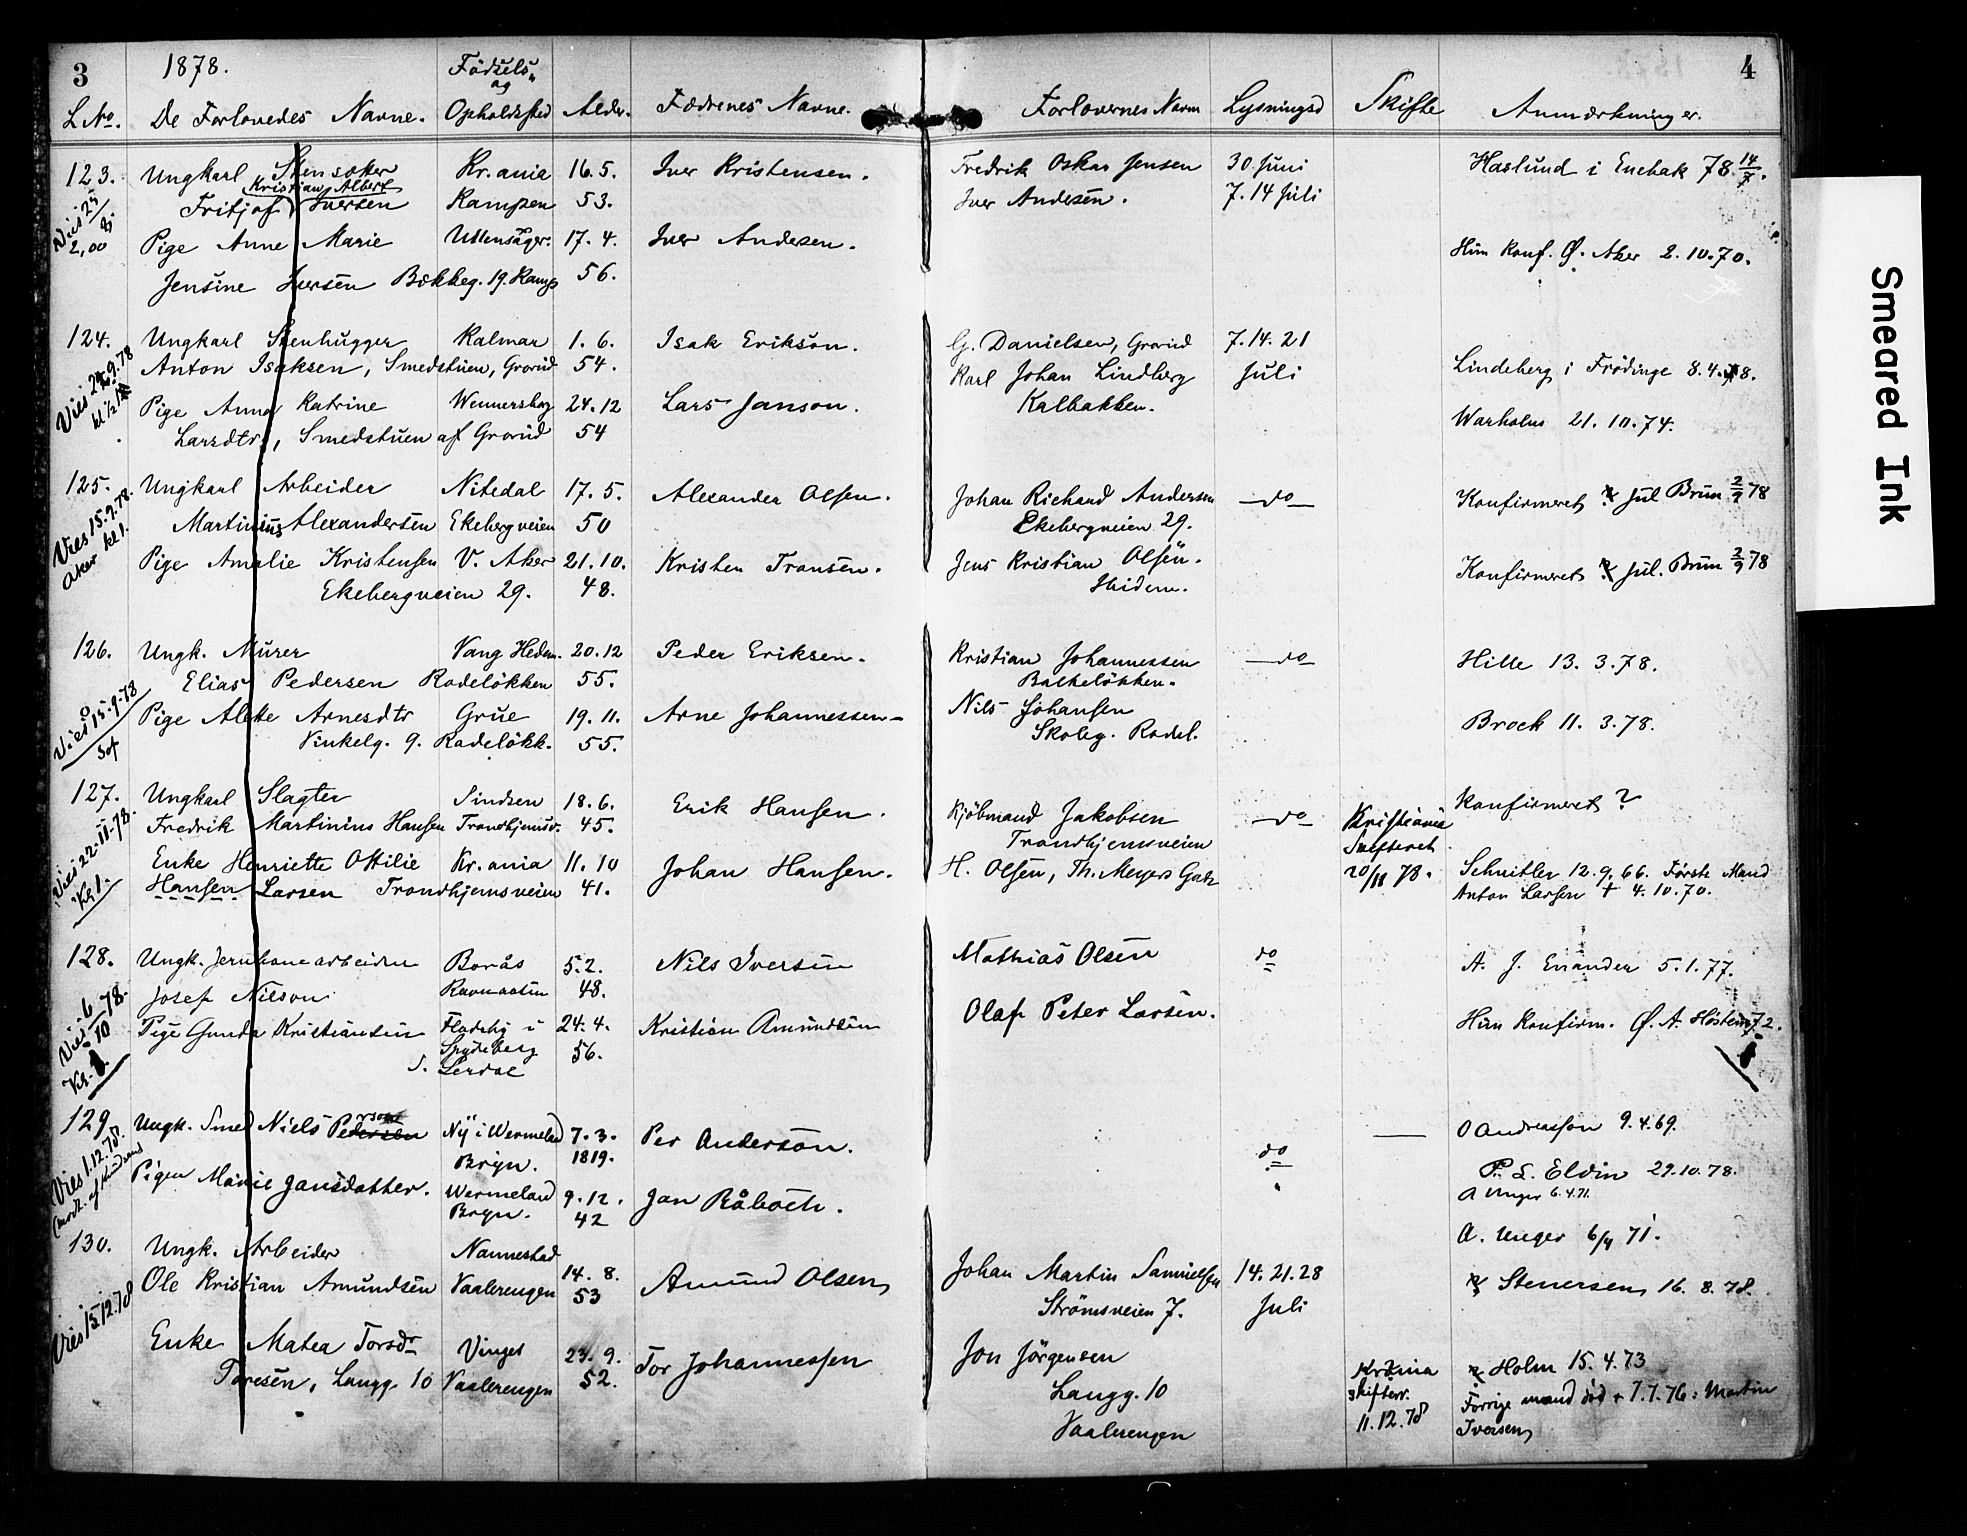 3
1878.
L No. De Forlovedes Navne. Fødsels- og Opholdssted Alder. Fædrenes Navne. Forlovernes Navn Lysningsd Skifte Anmærkninger.
4
123. Ungkarl Kr.ania 16.5. Iver Kristensen. Fredrik Oskar Jensen 30. Juni Haslund i Enebak 78 14/7.
Kristian Albert
Fritjof Iversen Kampen 53. Iver Andersen. 7.14 Juli
2,00 Pige Anne Marie Ullensager. 17.4. Iver Andersen. Him Konf. Ø. Aker 2.10.70.
Jensine Iversen Bekkeg. 19. Kamp 56.
124. Ungkarl Stenhugger Kalmar 1.6. Isak Erikson. G. Danielsen, Grorud 7.14.21
Vies 29.9.78 Anton Isaksen, Smedstuen, Grorud 54. Karl Johan Lindberg Juli Lindeberg i Frödinge 8.4.78.
kl 1/2 Pige Anna Katrine Wennersborg 24.12 Lars Janson. Kalbakken. Warholm 21.10.74.
Larsdtr, Smedstuen af Grorud 54
125. Ungkarl Arbeider Nitedal 17.5. Alexander Olsen. Johan Richard Andersen do Konfirmeret Jul Brun 2/9 78
Vies 15.9.78. Martinius Alexandersen Ekebergveien 50 Ekebergveien 29.
Aker kl 1. Pige Amalie Kristensen V. Aker 21.10. Kristen Fransen. Jens Kristian Olsen. Konfirmeret Jul. Brun 2/9 78
Ekebergveien 29. 48. Ibidem.
126. Ungk. Murer Vang Hedm. 20.12 Peder Eriksen. Kristian Johannessen do Hille 13.3.78.
Elias Pedersen Rodeløkken 55. Balkeløkken.
Vies 15.9.78 Pige Arnesdtr Grue 19.11. Arne Johannessen Nils Johansen Brock 11.3.78.
Vinkelg. 9. Rodeløkk. 55. Skoleg. Rodel.
127. Ungkarl Slagter Sindsen 18.6. Erik Hansen. Kjöbmand Jakobsen do Kristiania Konfirmeret ?
Vies 22-11-78. Fredrik Martinius Hansen Trondhjemsv. 45. Trondhjemsveien Skifteret
Kl 1. Enke Henriette Ottilie Kr.ania 11.10 Johan Hansen. H. Olsen, Th. Meyers Gade 20/11 78. Schnitler 12.9.66. Første Mand
Hansen Larsen Trondhjemsveien 41. Anton Larsen + 4.10.70.
128. Ungk. Jernbanearbeider Borås 5.2. Nils Iversen Mathias Olsen do A. J. Enander 5.1.77.
Josef Nilson Ravnaasen 48.
Vies 6/10 78. Pige Gunda Kristiansen Fladeby i 24.4. Kristian Amundsen Olaf Peter Larsen. Him Konfirm. Ø. A. Hösten 72.
Spydeberg 56.
Kl. s. Lerdal
129. Ungk. Smed Niels Pedersen Ny i Wermeland 7.3. Per Anderson. do O Andreasson 9.4.69.
Vies 1.12.78. Bryn. 1819. P. L. Eldin 29.10.78.
Pigen Marie Jansdatter. Wermeland 9.12. Jan Råbock. A Unger 6.4.71.
Bryn. 42
130. Ungk. Arbeider Nannestad A. Unger 6/4 71.
Ole Kristian Amundsen Vaalerengen 14.8. Amund Olsen Johan Martin Samuelsen 14.21.28 Stenersen 16.8.78.
Vies 15.12.78 53 Strömsveien 7. Juli
Enke Matea Torsdr Vinger 23.9. Tor Johannessen Jon Jörgensen Kr.ania Holm 15.4.73
Toresen, Langg. 10 Vaalerengen 52. Langg. 10 skifter. Forrige mand död + 7.7.76: Martin
Vaalerengen 11.12.78 Iversen
Smeared Ink